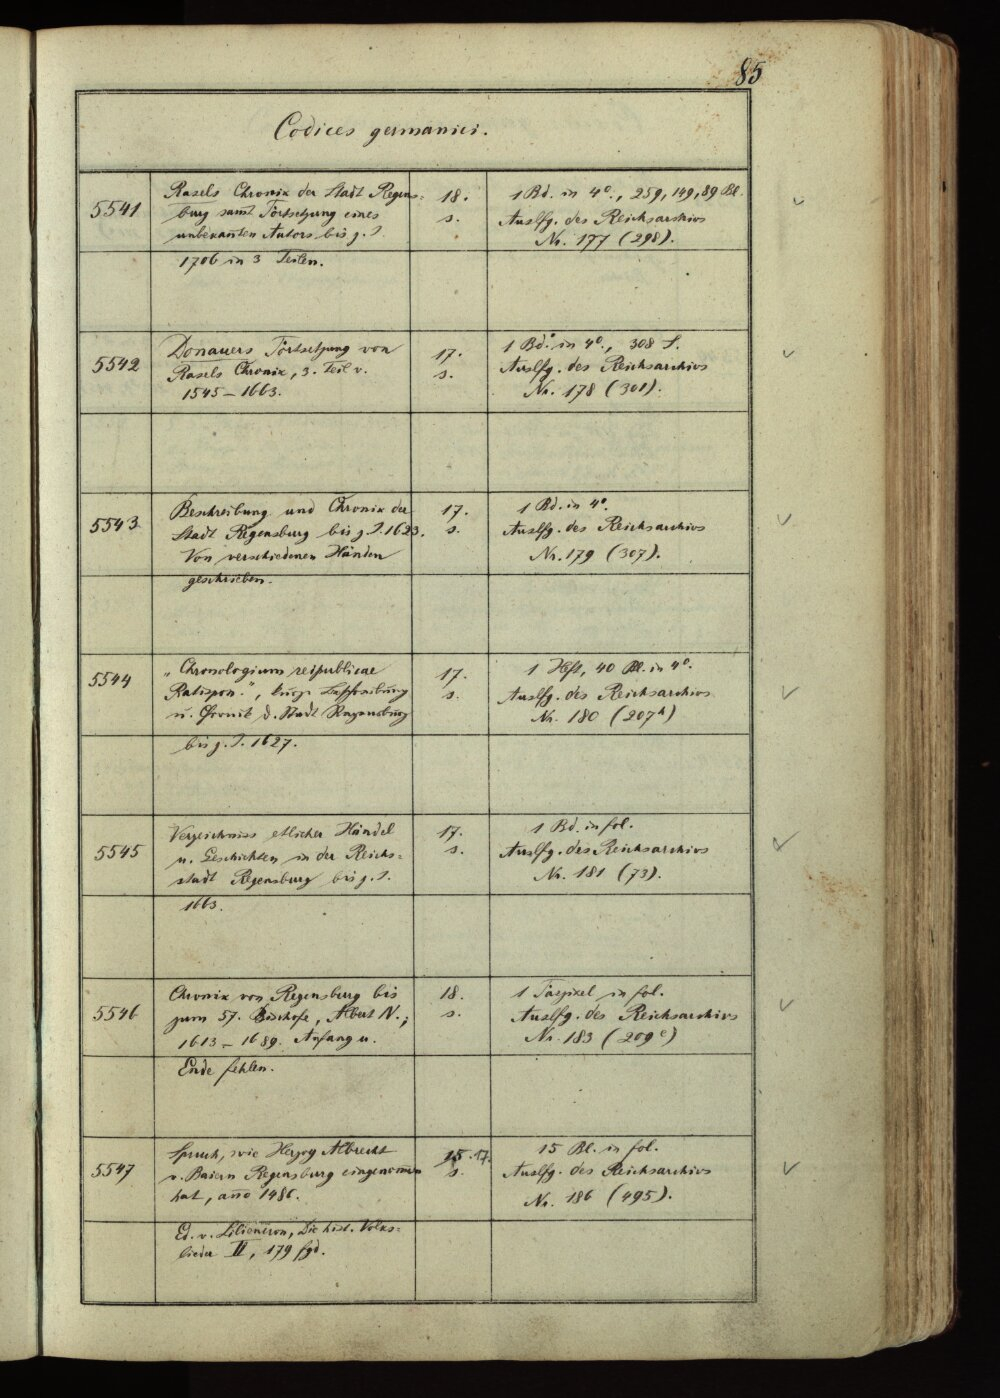 85
Codices germanici.
5541
Rasels Chronik der Stadt Regens-
burg samt Fortsetzung eines
unbekan̄ten Autors bis z. J.
1706 in 3 Teilen.
18.
s.
1 Bd. in 4°., 259, 149, 89 Bl.
Auslfg. des Reichsarchivs
Nr. 177 (298).
5542
Donauers Fortsetzung von
Rasels Chronik, 3. Teil v.
1545 – 1663.
17.
s.
1 Bd. in 4°., 308 S.
Auslfg. des Reichsarchivs
Nr. 178 (301).
5543
Beschreibung und Chronik der
Stadt Regensburg bis z. J. 1623.
Von verschiedenen Händen
geschrieben.
17.
s.
1 Bd. in 4°.
Auslfg. des Reichsarchivs
Nr. 179 (307).
5544
„Chronologium reipublicae
Ratispon.", kurze Beschreibung
u. Chronik d. Stadt Regensburg
bis z. J. 1627.
17.
s.
1 Heft, 40 Bl. in 4°.
Auslfg. des Reichsarchivs
Nr. 180 (207h)
5545
Verzeichniss etlicher Händel
u. Geschichten in der Reichs-
stadt Regensburg bis z. J.
1663.
17.
s.
1 Bd. in fol.
Auslfg. des Reichsarchivs
Nr. 181 (73).
5546
Chronik von Regensburg bis
zum 57. Bischofe, Albert IV.;
1613 – 1689. Anfang u.
Ende fehlen.
18.
s.
1 Faszikel in fol.
Auslfg. des Reichsarchivs
Nr. 183 (209e)
5547
Spruch, wie Herzog Albrecht
v. Baiern Regensburg eingenom̄en
hat, an̄o 1486.
Ed. v. Liliencron, Die hist. Volks-
lieder II, 179 fgd.
15.17.
s.
15 Bl. in fol.
Auslfg. des Reichsarchivs
Nr. 186 (495).